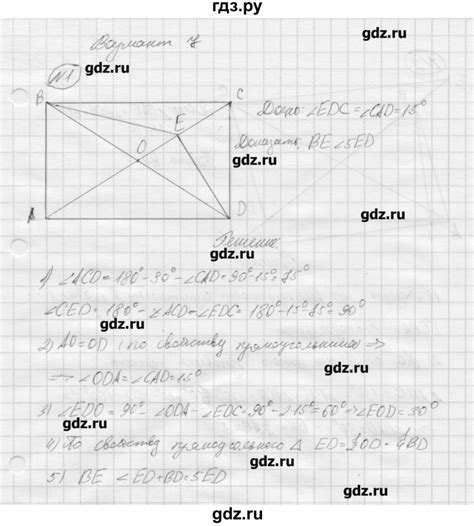 гдз.ру
Вариант 7
gdz.ru
N1
gdz.ru
B
C
gdz.ru
Дано: ∠EDC = ∠CAD = 15°
E
Доказать: BE ∠ 5ED
O
gdz.ru
A
D
Решение:
gdz.ru
1) ∠ACD = 180° - 90° - ∠CAD = 90° - 15° = 75°
∠CED = 180° - ∠ACD = ∠EDC = 180° - 15° - 75° = 90°
gdz.ru
gdz.ru
2) AO = OD (по свойству прямоугольника ⇒
⇒ ∠ODA = ∠CAD = 15°
gdz.ru
3) ∠EDO = 90° - ∠ODA - ∠EDC = 90° - 2·15° = 60° ⇒ ∠EOD = 30°
gdz.ru
4) По свойству прямоугольного Δ ED = OD = BD
gdz.ru
5) BE ∠ ED + BD = 5ED
gdz.ru
gdz.ru